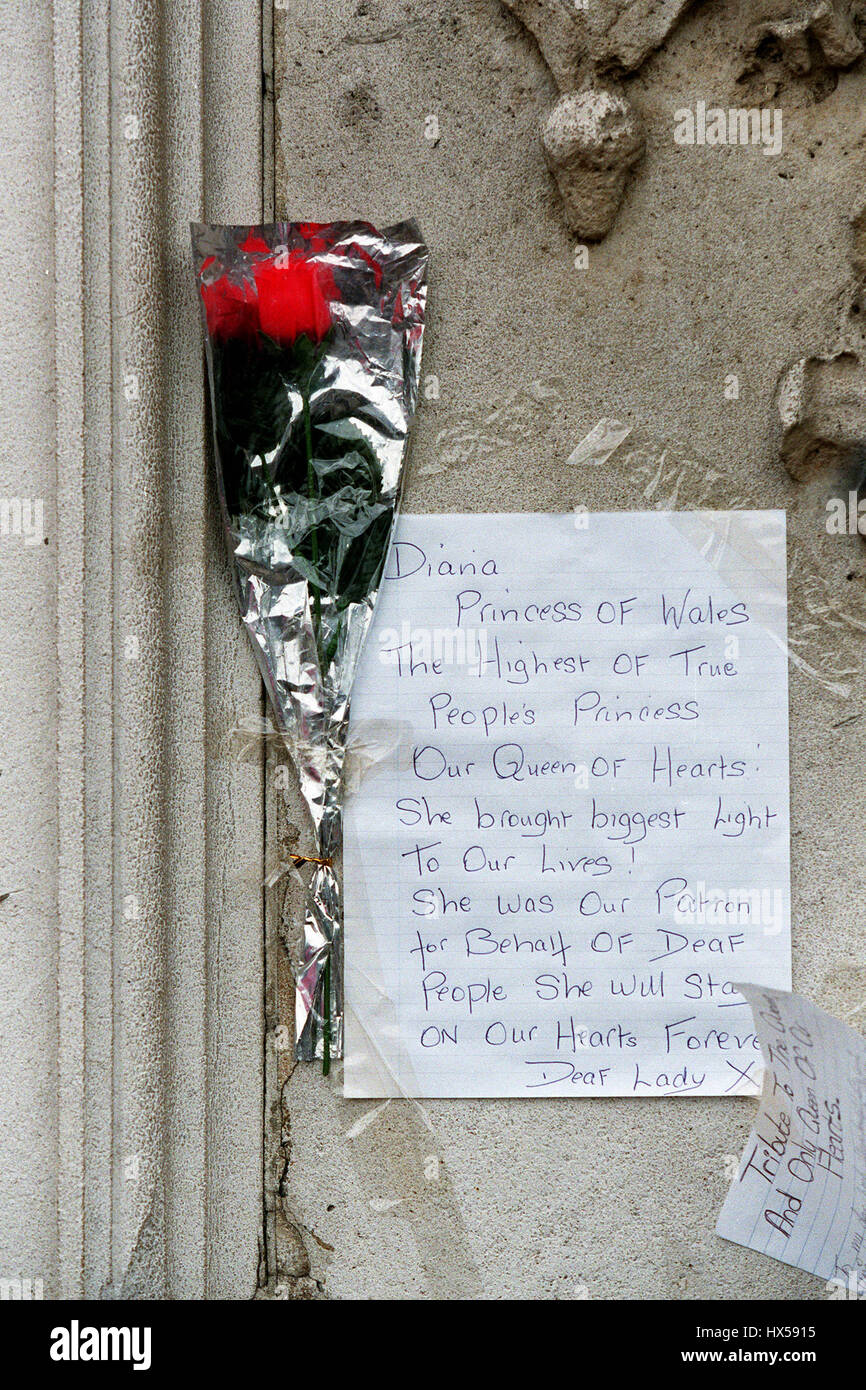 Diana
Princess OF Wales
The Highest OF True
People's Princess
Our Queen OF Hearts!
She brought biggest Light
To Our Lives!
She was Our Patron
for Behalf OF Deaf
People She Will Stay
ON Our Hearts Foreve
Deaf Lady X
Tribute To The One
And Only Queen Of Our
Hearts.
alamy stock photo
HX5915
www.alamy.com